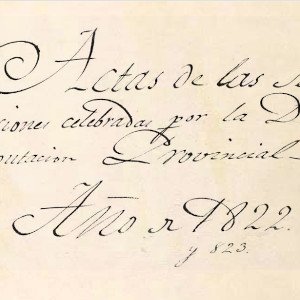 Actas de las Se
siones celebradas por la D
iputacion Provincial
Año de 1822.
y 823.